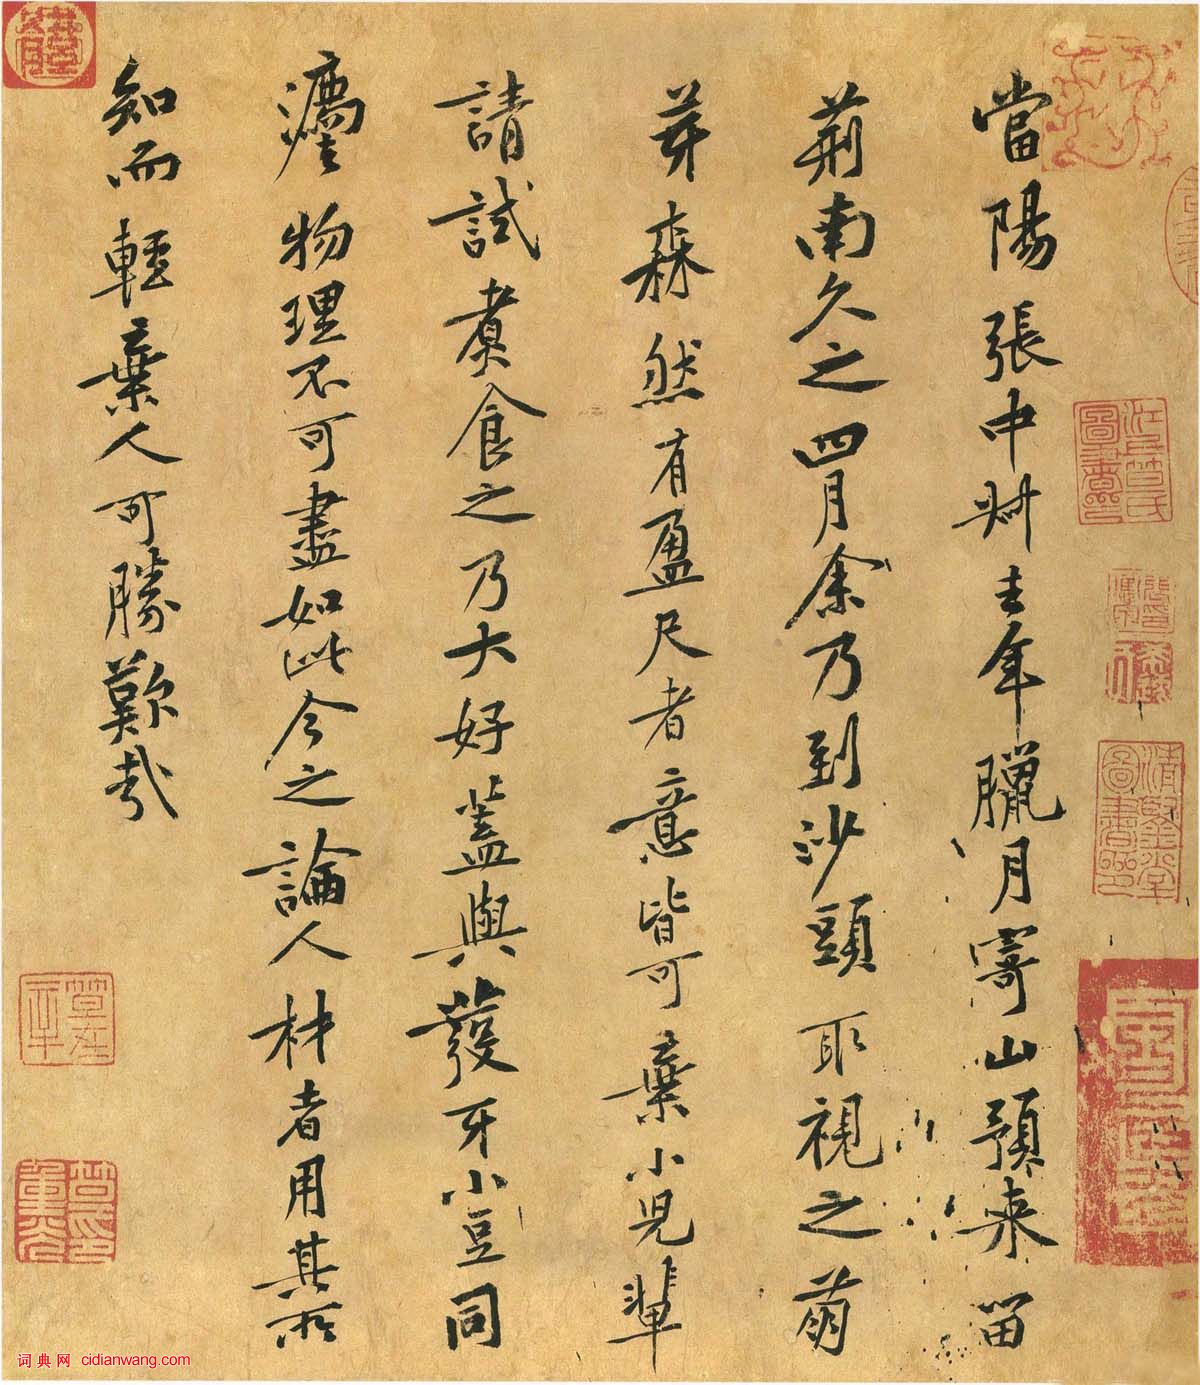 當陽張中叔去年臘月寄山預來留
荊南久之四月余乃到沙頭取視之萌
芽森然有盈尺者意皆可棄小兒輩
請試煮食之乃大好蓋與發牙小豆同
法物理不可盡如此今之論人材者用其所
知而輕棄人可勝歎哉
清鑒堂圖書印
词典网 cidianwang.com